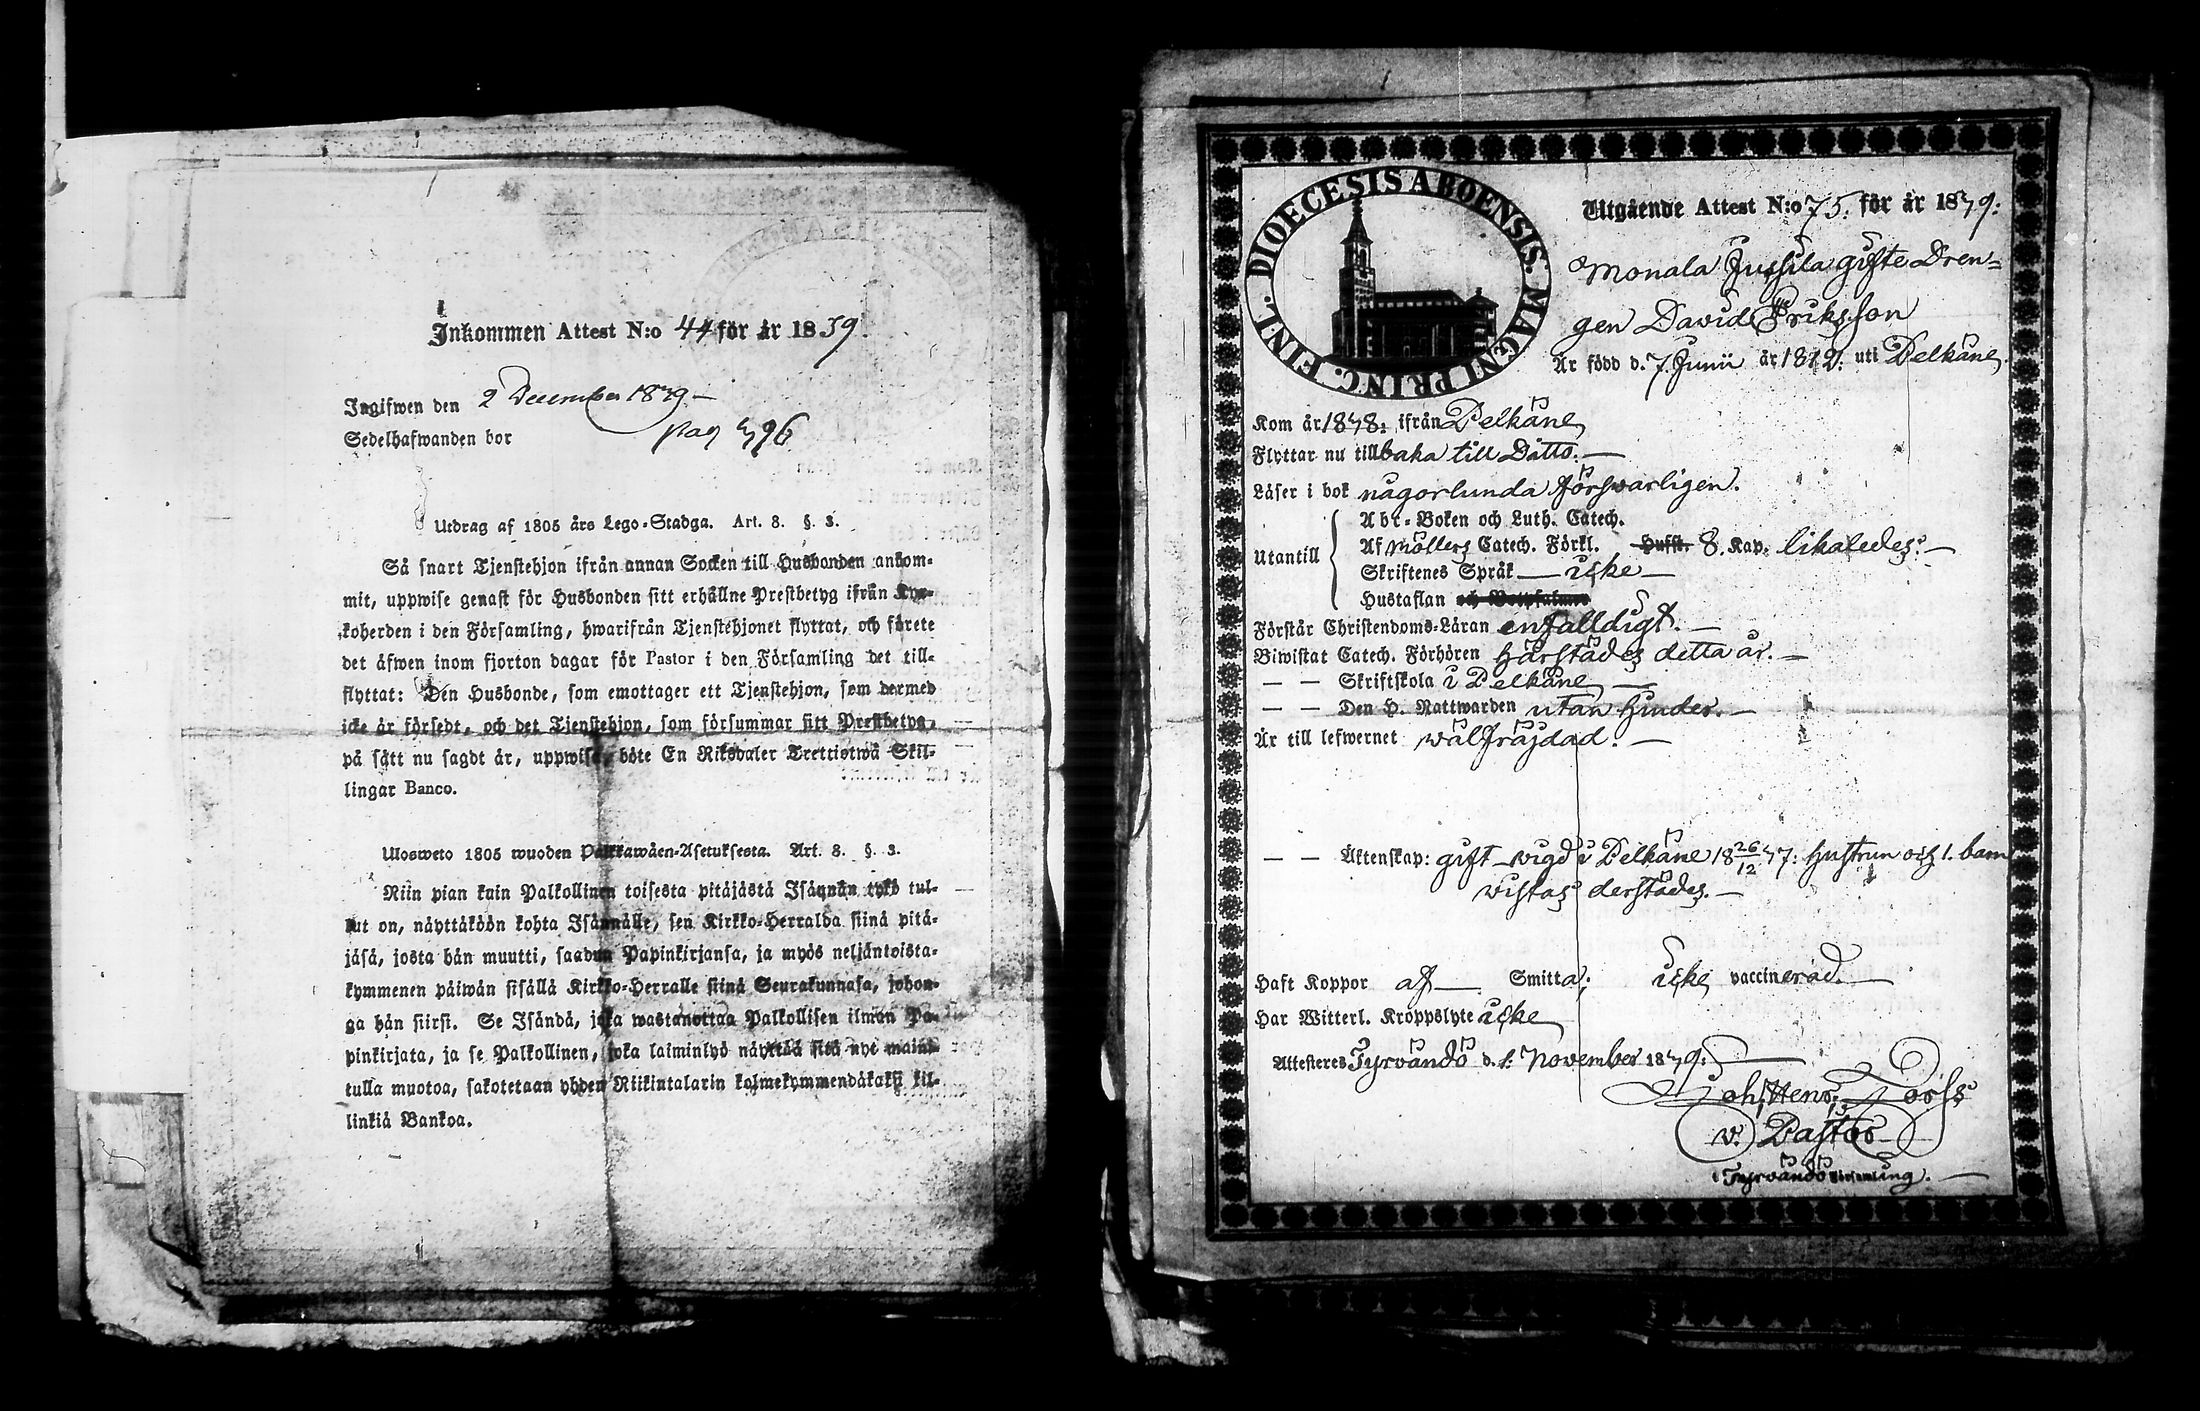 Inkommen Attest N:o 44 för år 1859.
Ingifwen den 2 December 1849 –
Sedelhafwanden bor pag 496
Utdrag af 1805 års Lego-Stadga. Art. 8. §. 3.
Så snart Tjenstehjon ifrån annan Socken till Husbonden ankom-
mit, uppwise genast för Husbonden sitt erhållne Prestbetyg ifrån Kyr-
koherden i den Församling, hwarifrån Tjenstehjonet flyttat, och förete
det äfwen inom fjorton dagar för Pastor i den Församling det till-
flyttat: Den Husbonde, som emottager ett Tjenstehjon, som dermed
icke är försedt, och det Tjenstehjon, som försummar sitt Prestbetyg,
på sätt nu sagdt är, uppwisa, böte En Riksdaler Trettiotwå Skil-
lingar Banco.
Ulosweto 1805 wuoden Palkkawäen-Asetuksesta. Art. 8. §. 3.
Niin pian kuin Palkollinen toisesta pitäjästä Isännän tykö tul-
lut on, näyttäköön kohta Isännälle, sen Kirkko-Herralda siinä pitä-
jäsä, josta hän muutti, saadun Papinkirjansa, ja myös neljäntoista-
kymmenen päiwän sisällä Kirkko-Herralle siinä Seurakunnasa, johon-
ga hän siirsi. Se Isändä, joka wastanottaa Palkollisen ilman Pa-
pinkirjata, ja se Palkollinen, joka laiminlyö näyttää sitä nyt maini-
tulla muotoa, sakotetaan yhden Riikintalarin kolmekymmendäkaksi kil-
linkiä Bankoa.
DIOECESIS ABOENSIS. MAGNI PRINC. FINL.
Utgående Attest N:o 75. för år 1849:
Monala Jussila gifte Dren=
gen David Eriksson
Är född d. 7. Junii år 1812. uti Pelkäne
Kom år 1848: ifrån Pelkäne
Flyttar nu tillbaka till Ditto. —
Läser i bok någorlunda försvarligen.
Utantill
Abc-Boken och Luth. Catech.
Af Möllers Catech. Förkl. Husfl. 8. Kap. likaledes. —
Skriftenes Språk — icke —
Hustaflan
Förstår Christendoms-Läran enfalldigt. —
Biwistat Catech. Förhören härstädes detta år. —
— — Skriftskola i Pelkäne —
— — Den H. Nattwarden utan hinder. —
Är till lefwernet wälfräjdad. —
— — Äktenskap: gift wigd i Pelkäne 18 26/12 47. hustrun och 1. barn
wistas derstädes. —
Haft Koppor af — Smitta; icke vaccinerad. —
Har Witterl. Kroppslyte icke
Attesteras Tyrvändö d. 1. November 1849:
Joh. Henr.
v. Pastor
i Tyrvändö Församling. —